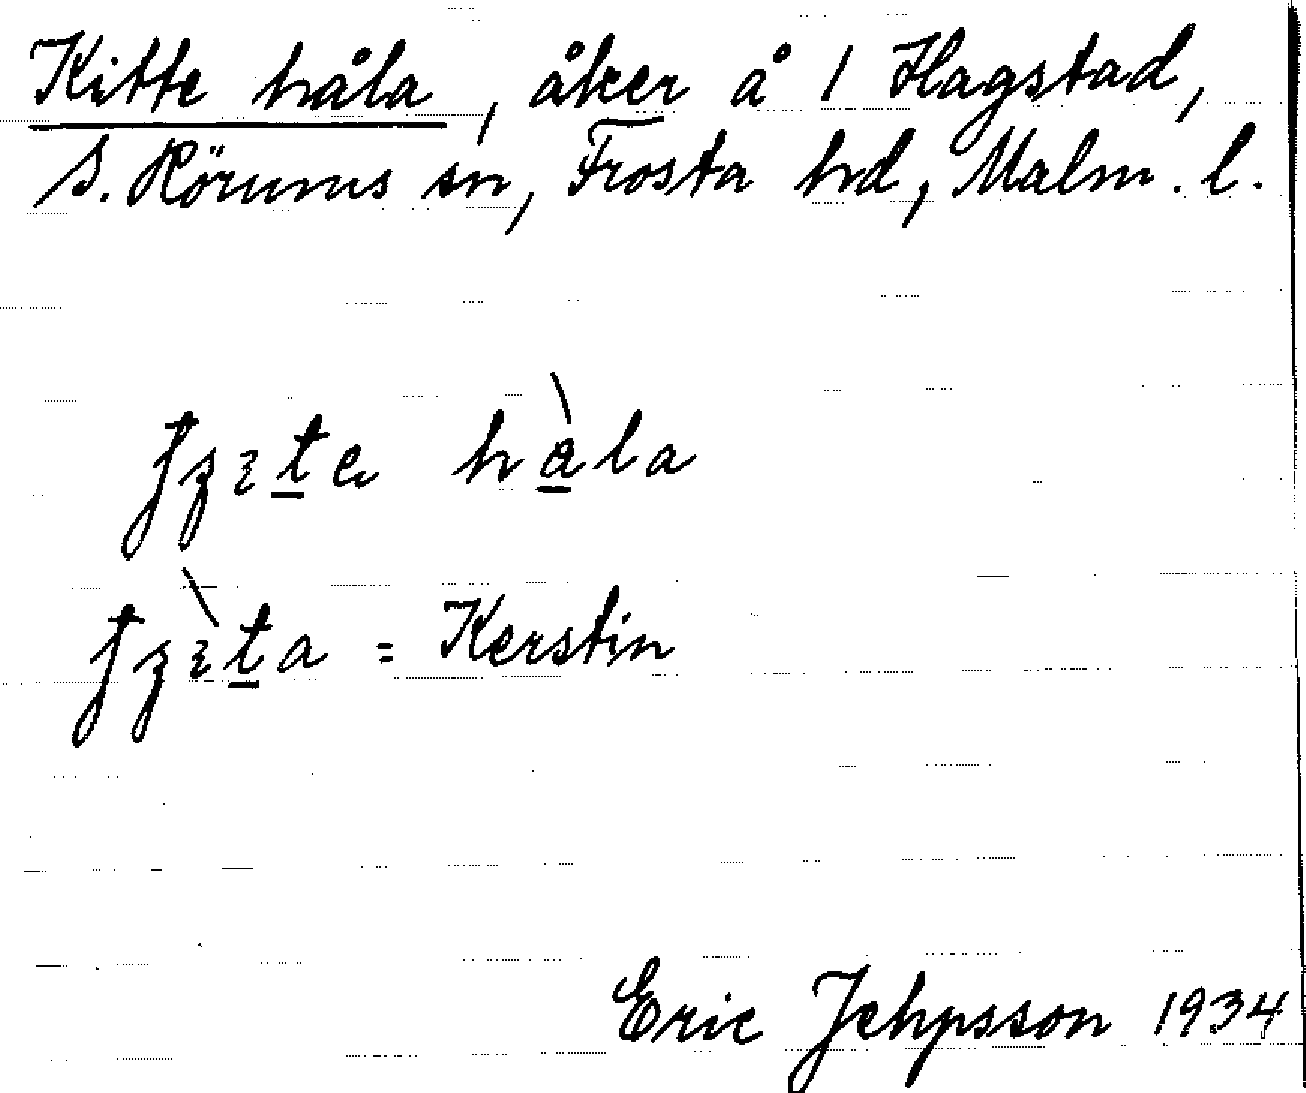 Kitte håla, åker å 1 Hagstad,
S. Rörums sn, Frosta hd, Malm. l.
håla
= Kerstin
Eric Jehpsson 1934